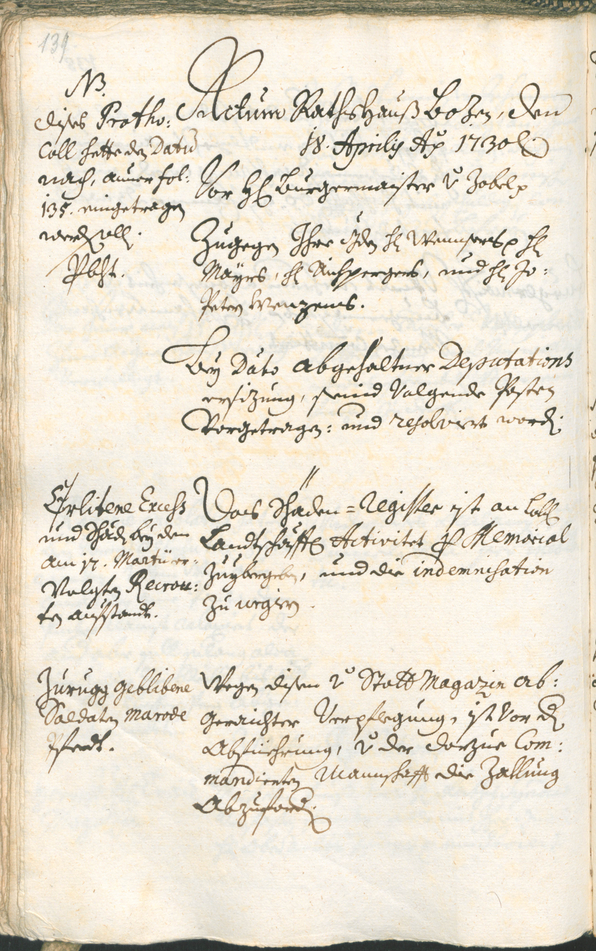 139
NB.
dises Protho:
Coll hette den Dato
nach, an fol:
135. eingetragen
werden soll.
Actum Rathshauß Bozen, den
18. Aprilis Ao. 1730
Vor H: Burgermaister v Zobel
Zugegen Ihro H: Wenser H:
Mayrs, H: Aichpergers, und H: Jo:
Peter Wenzens.
Bey Dato abgehaltner Deputations
ersizung, seind volgende Posten
Vorgetragen: und resolvirt word:
Erlitene Excess
und Schäden bey den
am 17. Martii er:
Volgten Recrou:
ten aufstandt.
Das Schäden=Register ist an Löbl:
Landtschafft Activitet p Memorial
Zuybergeben, und die indemnisation
Zu urgirn.
Zurugg geblibene
Soldaten marode
Pferdt.
Wegen disen v Statt Magazin ab:
geraichter Verpflegung, ist vor d
Abfuehrung, v der darzue Com:
mandierten Mannschafft die Zallung
Abzufordern